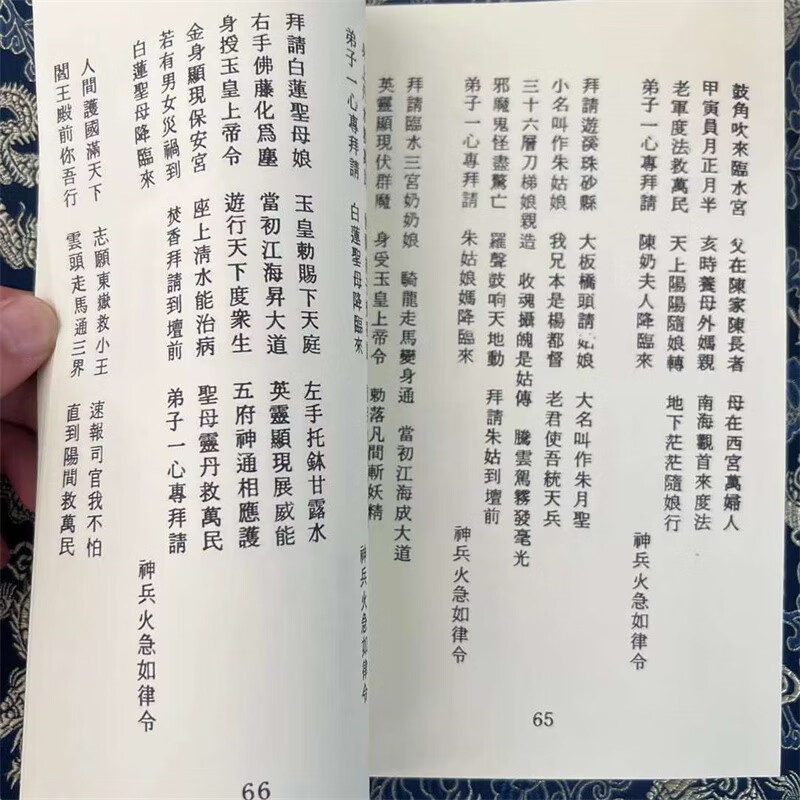 鼓角吹來臨水宮 父在陳家陳長者 母在西宮萬婦人
甲寅員月正月半 亥時養母外媽親 南海觀首來度法
老軍度法救萬民 天上陽陽隨娘轉 地下茫茫隨娘行
弟子一心專拜請 陳奶夫人降臨來 神兵火急如律令
拜請遊溪珠砂縣 大板橋頭請姑娘 大名叫作朱月聖
小名叫作朱姑娘 我兄本是楊都督 老君使吾統天兵
三十六層刀梯娘親造 收魂攝魄是姑傳 騰雲駕霧發毫光
邪魔鬼怪盡驚亡 羅聲鼓响天地動 拜請朱姑到壇前
弟子一心專拜請 朱姑娘媽降臨來 神兵火急如律令
拜請臨水三宮奶奶娘 騎龍走馬變身通 當初江海成大道
英靈顯現伏群魔 身受玉皇上帝令 勅落凡間斬妖精
65
弟子一心專拜請 白蓮聖母降臨來 神兵火急如律令
拜請白蓮聖母娘 玉皇勅賜下天庭 左手托鉢甘露水
右手佛藤化爲塵 當初江海昇大道 英靈顯現展威能
身授玉皇上帝令 遊行天下度衆生 五府神通相應護
金身顯現保安宮 座上清水能治病 聖母靈丹救萬民
若有男女災禍到 焚香拜請到壇前 弟子一心專拜請
白蓮聖母降臨來 神兵火急如律令
人間護國滿天下 志願東嶽救小王 速報司官我不怕
閻王殿前你吾行 雲頭走馬通三界 直到陽間救萬民
66